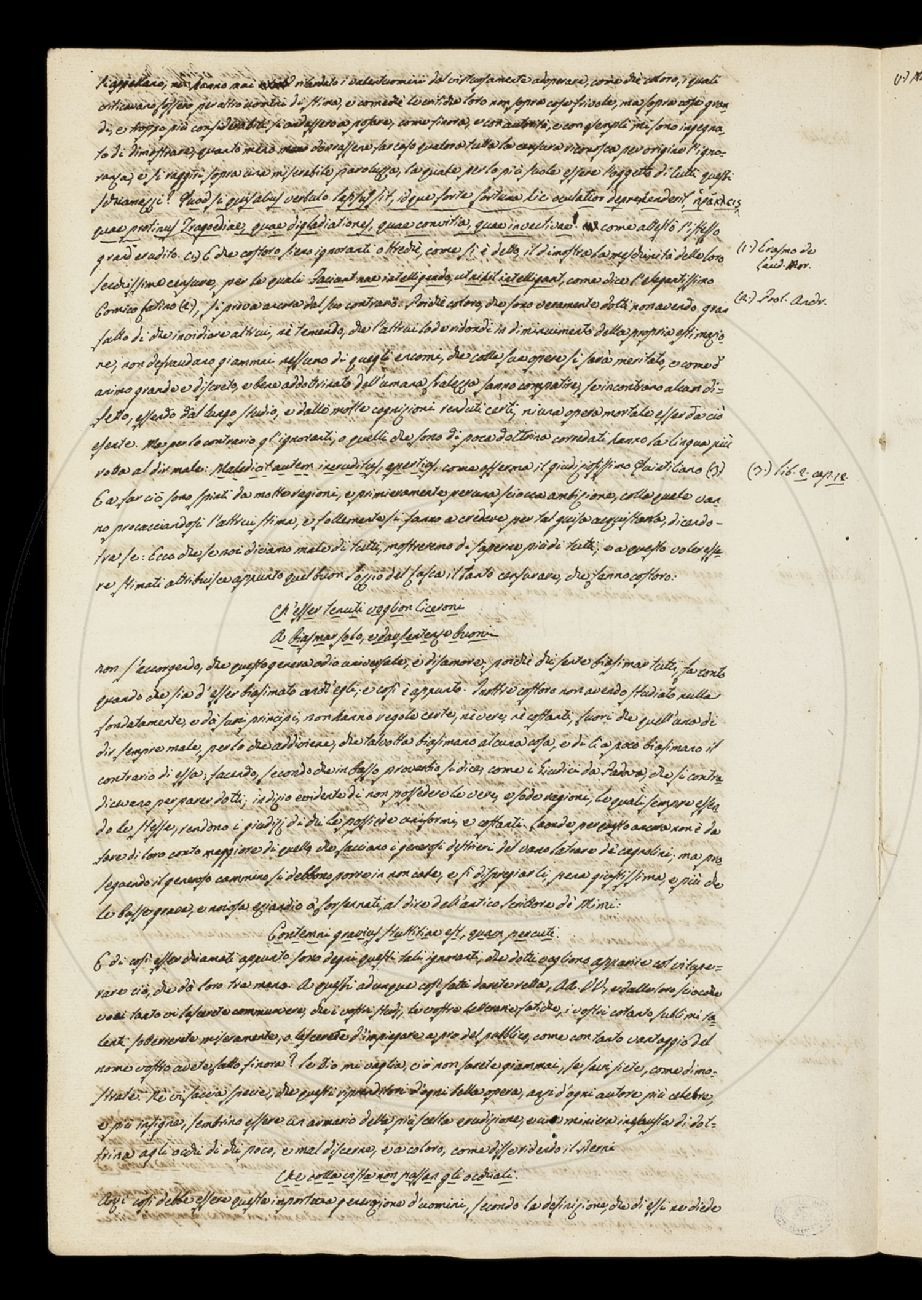 s'aspettano, non hanno mai ricordato i valentuomini dal virtuosamente adoperare, come che coloro, i quali
criticavano fossero per altro uomini di stima, e comechè le critiche loro non sopra cose frivole, ma sopra cose gran
di, e troppo più considerabili si andassero a posare, come fierra, e con autorità, e con esempli mi sono ingegna-
to di dimostrare, quanto meno dovrassene far caso qualora tutta la censura riconosca per origine l'igno-
ranza, e si reggia sopra una miserabile parolaccia, la quale per lo più suole essere l'oggetto di tutti questi
schiamazzi? Quod si quispiam verbulo lapsus sit, idque forte fortuna hic oculatior deprehenderit
quae protinus Tragoediae, quae digladiationes, quae convitia, quae invectivae come attestò l'istesso
grand'erudito. (1) E che costoro sieno ignoranti oltredichè, come si è detto, il dimostra la meschinità delle loro
secchissime censure, per le quali Faciunt nae intelligendo, ut nihil intelligant, come dice l'elegantissimo
Comico latino (2), si prova ancora dal suo contrario. Poichè coloro, che sono veramente dotti non avendo gran
fatto di che invidiare altrui, nè temendo, che l'altrui lode ridondi in diminuimento della propria estimazio-
ne, non defraudano giammai nessuno di quegli encomi, che colle sue opere si sarà meritato, e come d'
animo grande e discreto, e bene addottrinato dell'umana fralezza sanno compatire, se incontrano alcun di-
fetto, essendo dal lungo studio, e dalle molte cognizioni renduti certi, niuna opera mortale esser da ciò
esente. Ma per lo contrario gl'ignoranti, o quelli che sono di poca dottrina corredati hanno la lingua più
rotta al dir male: Maledicit autem ineruditus, apertius come osserva il giudiziosissimo Quintiliano (3)
E a far ciò sono spinti da molte ragioni, e primieramente per una sciocca ambizione, colla quale van-
no procacciandosi l'altrui stima, e follemente si fanno a credere per tal guisa acquistarla, dicendo
tra se: Ecco che se noi diciamo male di tutti, mostreremo di saperne più di tutti; e a questo voler esse-
re stimati attribuisce appunto quel buon Poggio del Casca il tanto censurare, che fanno costoro:
Ch'esser tenuti voglion Ciceroni
A biasmar solo, e dar sentenze buoni
non s'accorgendo, che questo genera odio universale, e disamore, poichè chi suole biasimar tutti, fa conto
quando che sia d'esser biasimato anch'egli; e così è appunto. Inoltre costoro non avendo studiato nulla
fondatamente, e da suoi principj, non hanno regole certe, nè vere, nè costanti, fuori che quell'una di
dir sempre male, per lo che addiviene, che talvolta biasimano alcuna cosa, e di lì a poco biasimano il
contrario di essa, facendo, secondo che in basso proverbio si dice, come i Giudici da Padova, che si contra
dicevano per parer dotti; indizio evidente di non possedere le vere, e sode ragioni, le quali sempre essen
do le stesse, rendono i giudizj di chi le possiede uniformi, e costanti. Laonde per questo ancora non è da
fare di loro conto maggiore di quello che facciano i generosi destrieri del vano latrare de' cagnolini; ma pro
seguendo il generoso cammino si debbono porre in non cale, e si dispregiarli, pena giustissima, e più che
le busse grave, e noiosa eziandio a' forsennati, al dire dell'antico scrittore di Mimi:
Contemni gravius stultitiae est, quam percuti.
E di così esser chiamati appunto sono degni questi tali ignoranti, che dotti vogliono apparire col vitupe-
rare ciò, che dà loro tra mano. A questi adunque così fatti darete retta, AA. VV., e dalle loro sciocche
voci tanto vi lascerete commuovere, che i vostri studj, le vostre letterarie fatiche, i vostri cotanto sublimi ta-
lenti sotterrerete miseramente, o lascerete d'impiegare a pro del pubblico, come con tanto vantaggio del
nome vostro avete fatto finora? Se Dio mi vaglia, ciò non farete giammai, se savi siete, come dimo-
strate. Nè vi faccia specie, che questi riprenditori d'ogni bella opera, anzi d'ogni autore più celebre,
e più insigne, sembrino essere un armario della più scelta erudizione, e una miniera inesausta di dot-
trina agli occhi di chi poco, e mal discerne, e a coloro, come disse ridendo il Berni
Che colla vista non passan gli occhiali.
Anzi così debbe essere questa importuna generazione d'uomini, secondo la definizione, che di essi ne diede
(1) Erasmo de
Laud. Mor.
(2) Prol. Andr.
(3) lib. 2. cap. 12.